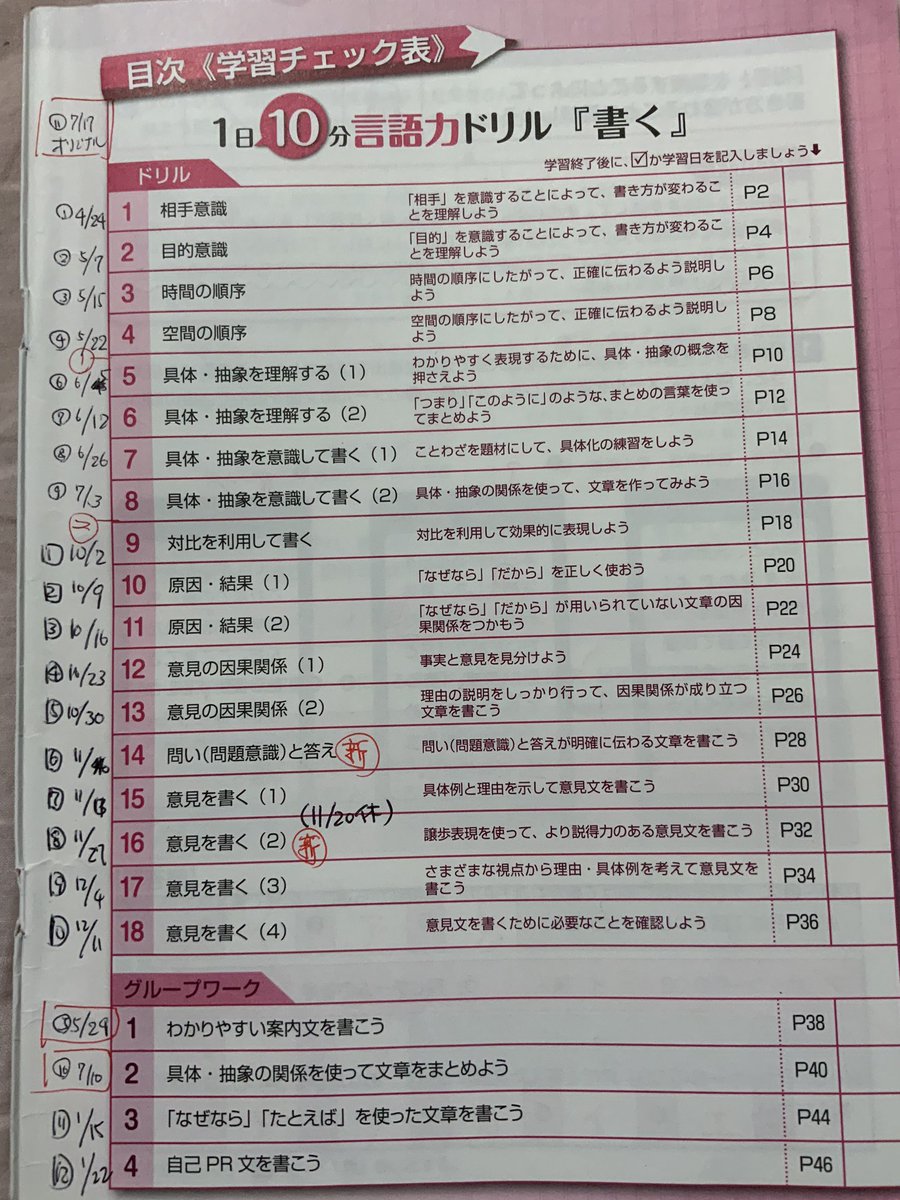 目次《学習チェック表》
⑪7/17
オリジナル
1日10分言語力ドリル『書く』
学習終了後に、☑か学習日を記入しましょう⬇
ドリル
①4/24 1 相手意識 「相手」を意識することによって、書き方が変わるこ P2
とを理解しよう
②5/7 2 目的意識 「目的」を意識することによって、書き方が変わるこ P4
とを理解しよう
③5/15 3 時間の順序 時間の順序にしたがって、正確に伝わるよう説明し P6
よう
④5/22 4 空間の順序 空間の順序にしたがって、正確に伝わるよう説明し P8
よう
⑥6/5 5 具体・抽象を理解する(1) わかりやすく表現するために、具体・抽象の概念を P10
押さえよう
⑦6/12 6 具体・抽象を理解する(2) 「つまり」「このように」のような、まとめの言葉を使っ P12
てまとめよう
⑧6/26 7 具体・抽象を意識して書く(1) ことわざを題材にして、具体化の練習をしよう P14
⑨7/3 8 具体・抽象を意識して書く(2) 具体・抽象の関係を使って、文章を作ってみよう P16
10/2 9 対比を利用して書く 対比を利用して効果的に表現しよう P18
10/9 10 原因・結果(1) 「なぜなら」「だから」を正しく使おう P20
10/16 11 原因・結果(2) 「なぜなら」「だから」が用いられていない文章の因 P22
果関係をつかもう
10/23 12 意見の因果関係(1) 事実と意見を見分けよう P24
10/30 13 意見の因果関係(2) 理由の説明をしっかり行って、因果関係が成り立つ P26
文章を書こう
14 問い(問題意識)と答え 新 問い(問題意識)と答えが明確に伝わる文章を書こう P28
11/13 15 意見を書く(1) 具体例と理由を示して意見文を書こう P30
(11/20休)
11/27 16 意見を書く(2) 新 譲歩表現を使って、より説得力のある意見文を書こう P32
12/4 17 意見を書く(3) さまざまな視点から理由・具体例を考えて意見文を P34
書こう
12/11 18 意見を書く(4) 意見文を書くために必要なことを確認しよう P36
グループワーク
⑤5/29 1 わかりやすい案内文を書こう P38
⑩7/10 2 具体・抽象の関係を使って文章をまとめよう P40
1/15 3 「なぜなら」「たとえば」を使った文章を書こう P44
1/22 4 自己PR文を書こう P46